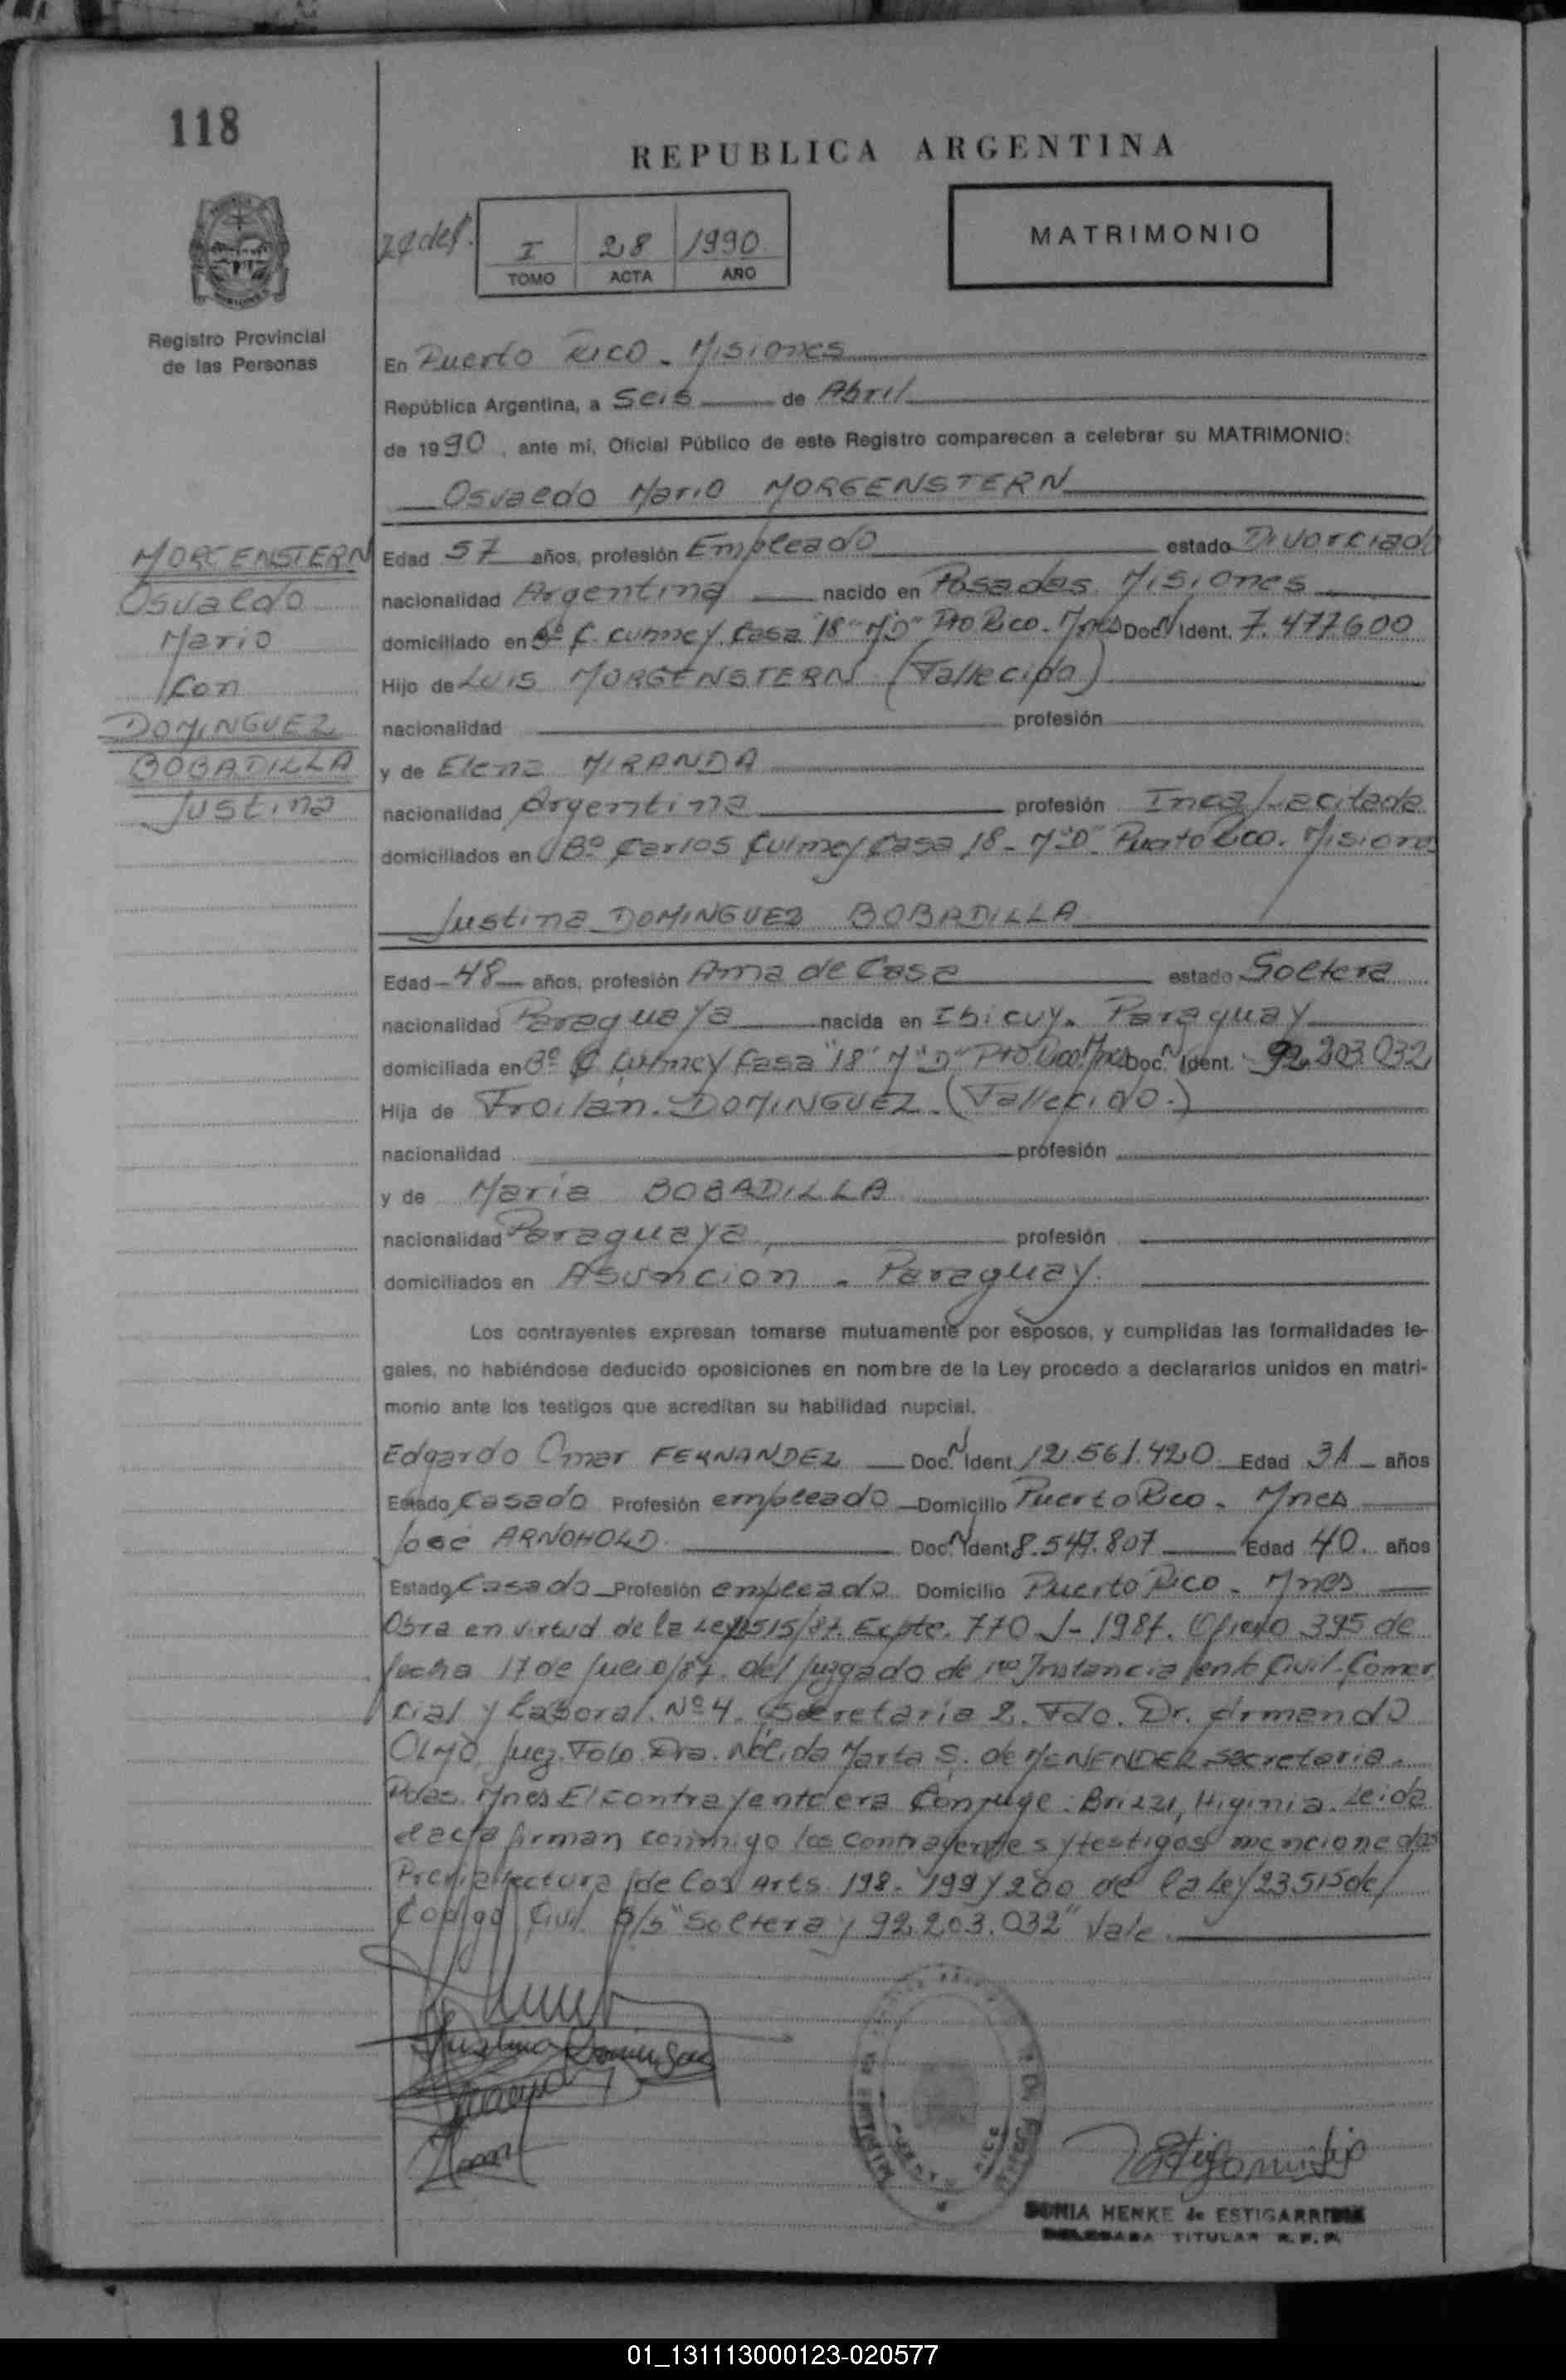 118
REPUBLICA ARGENTINA
I 28 1990
TOMO ACTA AÑO
MATRIMONIO
Registro Provincial
de las Personas
En Puerto Rico - Misiones
República Argentina, a Seis de Abril
de 1990, ante mi, Oficial Público de este Registro comparecen a celebrar su MATRIMONIO:
Osvaldo Mario MORGENSTERN
MORGENSTERN
Osvaldo
Mario
Con
DOMINGUEZ
BOBADILLA
Justina
Edad 57 años, profesión Empleado estado Divorciado
nacionalidad Argentina nacido en Posadas Misiones
domiciliado en Bº C. Culmey Casa "18" M"D" Pto Rico - Mnes Doc. Ident. 7.477600
Hijo de Luis MORGENSTERN (Fallecido)
nacionalidad profesión
y de Elena MIRANDA
nacionalidad Argentina profesión Incapacitada
domiciliados en Bº Carlos Culmey Casa 18 - M"D" Puerto Rico. Misiones
Justina DOMINGUEZ BOBADILLA
Edad - 48 - años, profesión Ama de Casa estado Soltera
nacionalidad Paraguaya nacida en Ibicuy. Paraguay
domiciliada en Bº C Culmey Casa "18" M"D" Pto Rico Mnes Doc. Ident. 92.203.032
Hija de Froilan. DOMINGUEZ. (Fallecido.)
nacionalidad profesión
y de Maria BOBADILLA
nacionalidad Paraguaya profesión
domiciliados en Asuncion - Paraguay.
Los contrayentes expresan tomarse mutuamente por esposos, y cumplidas las formalidades le-
gales, no habiéndose deducido oposiciones en nombre de la Ley procedo a declararlos unidos en matri-
monio ante los testigos que acreditan su habilidad nupcial.
Edgardo Omar FERNANDEZ Doc. Ident. 12.561.420 Edad 31 años
Estado Casado Profesión empleado Domicilio Puerto Rico - Mnes
José ARNOHOLD Doc. Ident 8.547.807 Edad 40 años
Estado Casado Profesión empleado Domicilio Puerto Rico - Mnes
Obra en virtud de la Ley Expte. 770-J-1987. Oficio 395 de
fecha 17 de Julio/87. del Juzgado de 1ra Instancia en lo Civil-Comer
cial y Laboral. Nº 4. Secretaria 2. Fdo. Dr. Armando
Juez. Fdo Dra. Nélida Marta S. de MENENDEZ secretaria.
Pdas. Mnes El contrayente era Conyuge: Brizzi, Higinia. Leida
el acta firman conmigo los contrayentes y testigos mencionados
Previa lectura de los Arts. 198. 199 y 200 de la Ley 23515 del
Codigo Civil. S/b "Soltera y 92.203.032" Vale.
SONIA HENKE de ESTIGARRIBIA
DELEGADA TITULAR R.P.P.
01_131113000123-020577